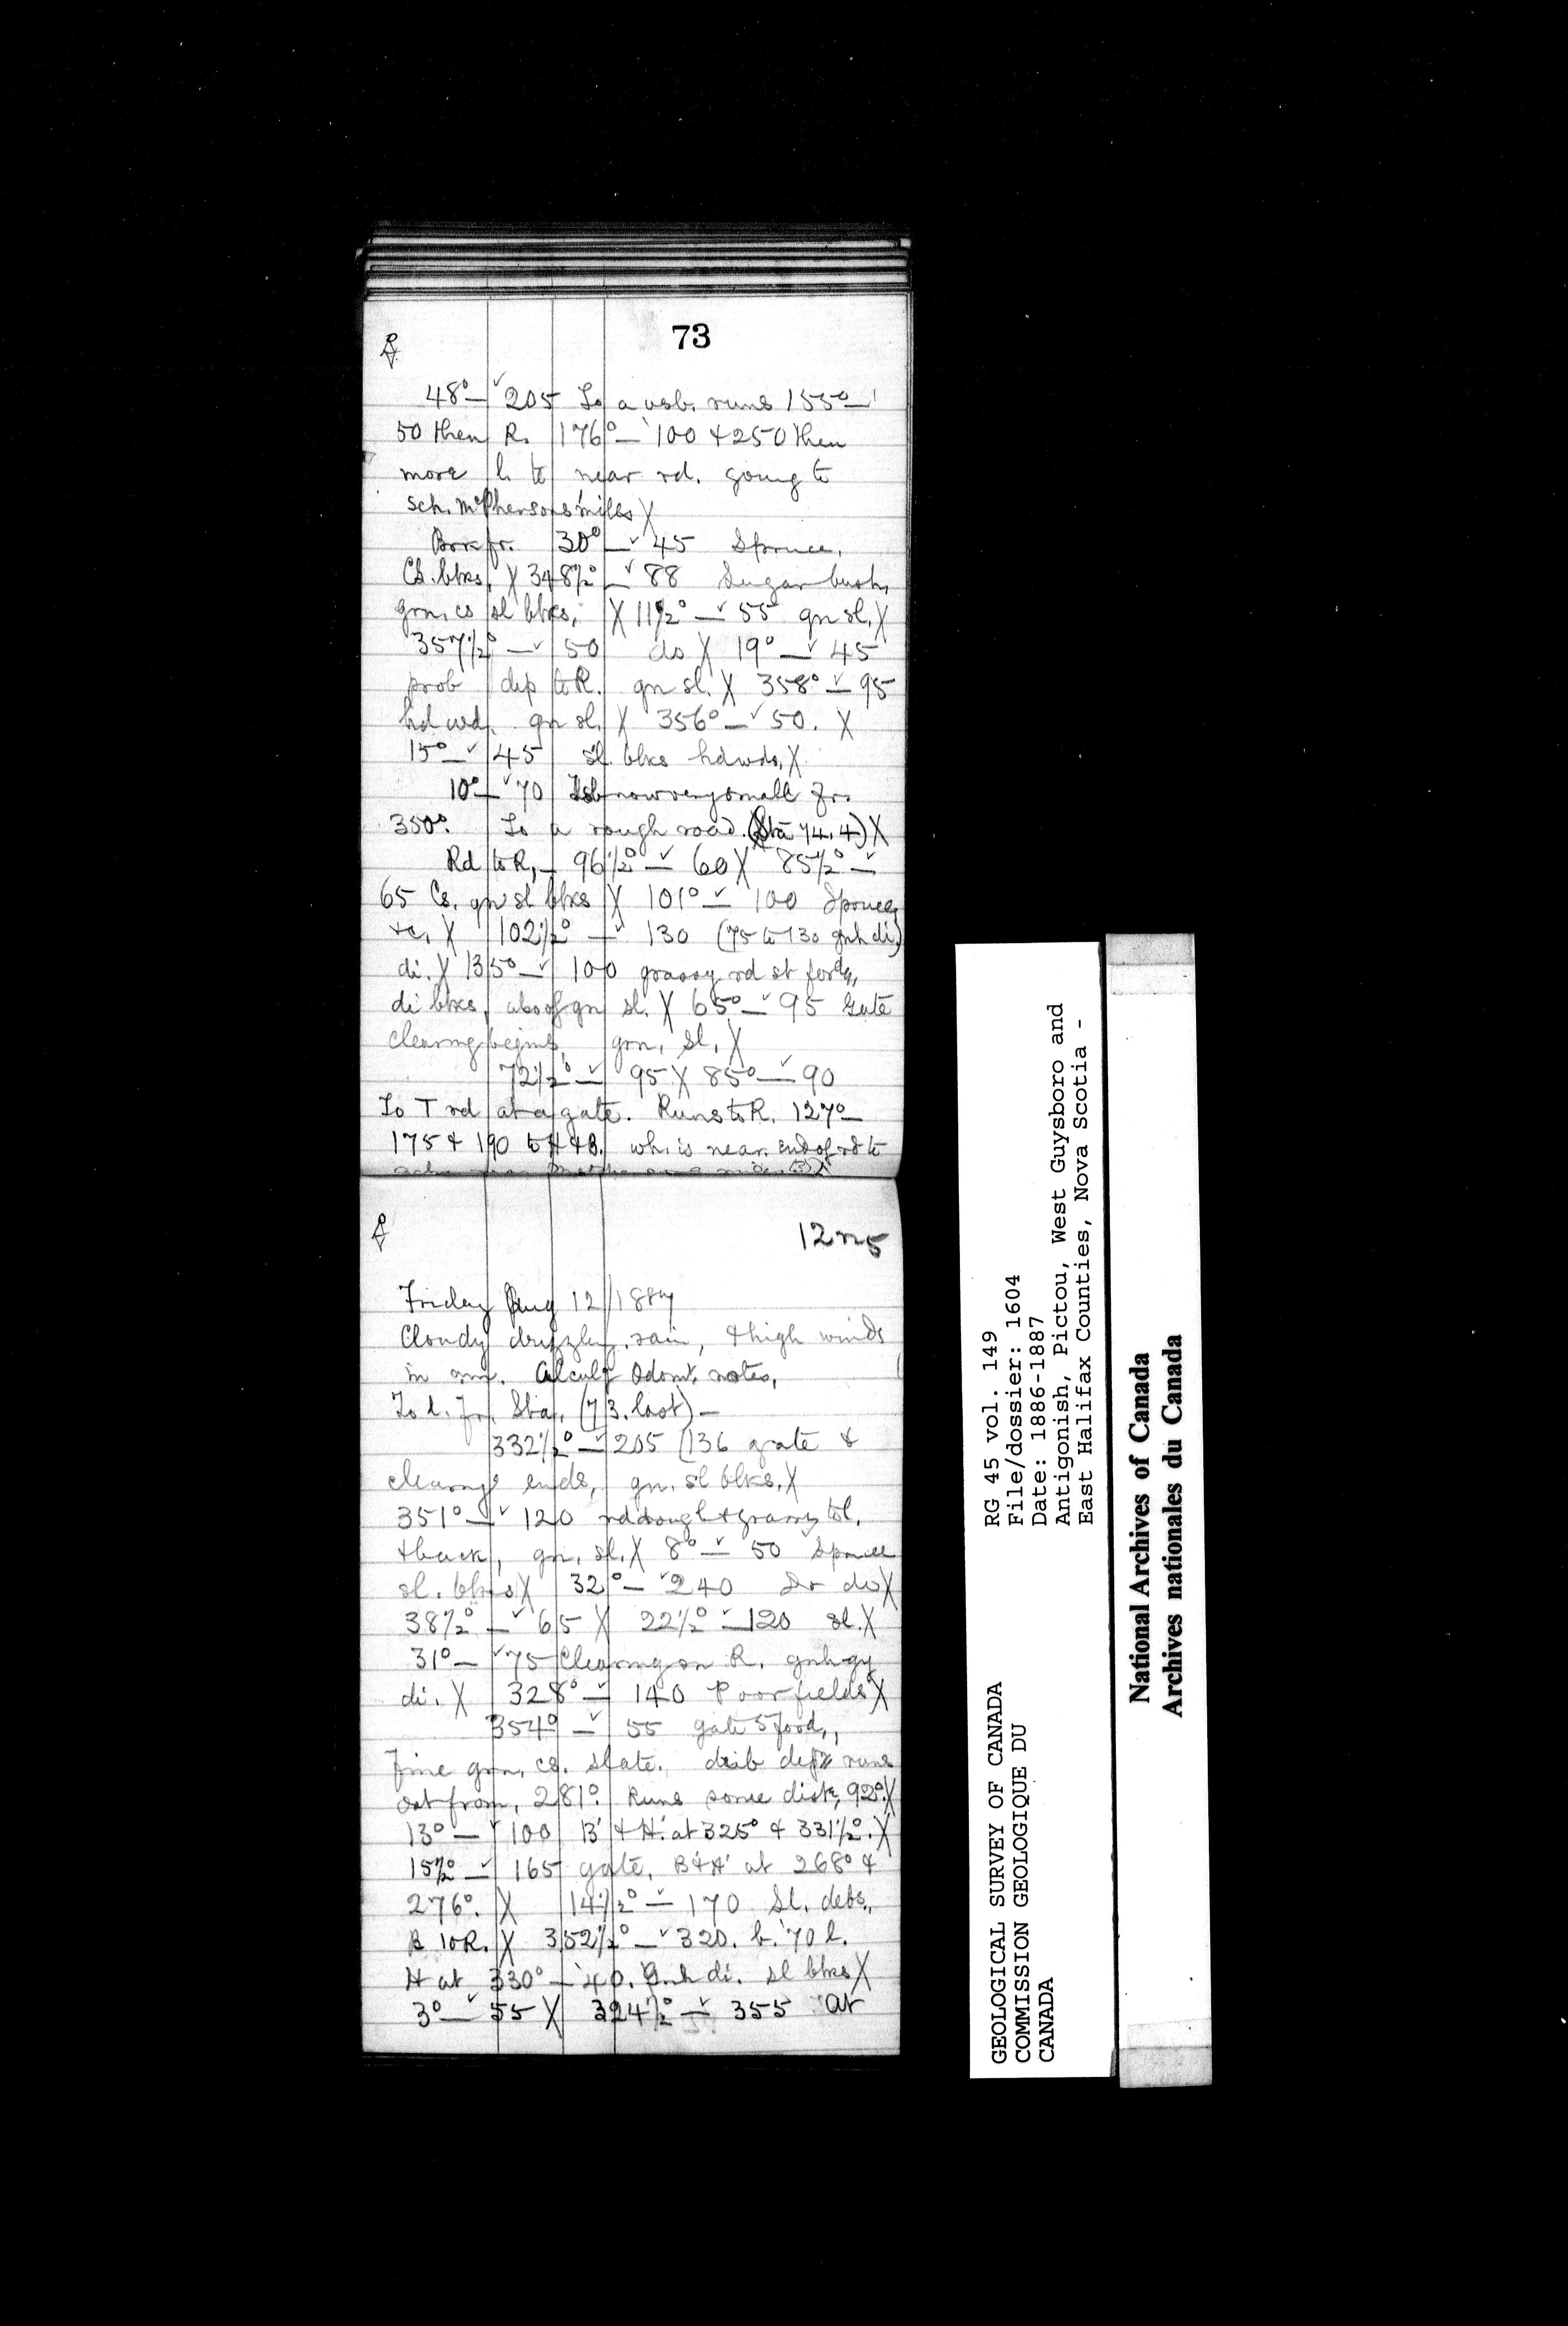 73
48° — 205 To a vsb. runs 155° —
50 then R. 176° — 100 + 250 then
more l. to near rd. going to
sch. McPhersons mills X
30° — 45 Spruce,
Cs. blks, X 348½° — 88 Sugar bush,
grn. cs sl blks, X 11½° — 55 gn sl. X
357½° — 50 do X 19° — 45
prob dip to R. gn sl. X 358° — 95
hd wd. gn sl. X 356° — 50. X
15° — 45 sl. blks hdwds, X
10° — 70 now very small fr.
350°. To a rough road. (Sta 74.4) X
Rd to R, — 96½° — 60 X 85½° —
65 Cs. gn sl blks X 101° — 100 Spruce,
&c. X 102½° — 130 (75 to 130 gnh di)
di. X 135° — 100 grassy rd st
di blks, also of gn sl. X 65° — 95 Gate
clearing begins, grn. sl. X
72½° — 95 X 85° — 90
To T rd at a gate. Runs to R. 127° —
175 + 190 to H + B. wh. is near end of rd to
12n5
Friday Aug 12/1887
Cloudy drizzly rain, & high winds
in mn. Calculg Odomt. notes,
To l. fr. Sta. (73. last) —
332½° — 205 (136 gate &
clearing ends, gn. sl blks. X
351° — 120 rd rough & grassy to l.
& back, gn. sl. X 8° — 50 Spruce
sl. blks X 32° — 240 do X
38½° — 65 X 22½° — 120 sl. X
31° — 75 Clearing on R. gnh gy
di. X 328° — 140 Poor fields X
354° — 55 gate
Fine grn. cs. slate. runs
out from, 281°. Runs some dist, 92° X
13° — 100 B' & H' at 325° & 331½°. X
15½° — 165 gate. B' & H' at 268° &
276°. X 14½° — 170 Sl. debs.,
B 10 R. X 352½° — 320. b. 70 l.
H at 330° — 40. Gnh di. sl blks X
3° — 55 X 324½° — 355 at
GEOLOGICAL SURVEY OF CANADA
COMMISSION GEOLOGIQUE DU
CANADA
RG 45 vol. 149
File/dossier: 1604
Date: 1886-1887
Antigonish, Pictou, West Guysboro and
East Halifax Counties, Nova Scotia -
National Archives of Canada
Archives nationales du Canada